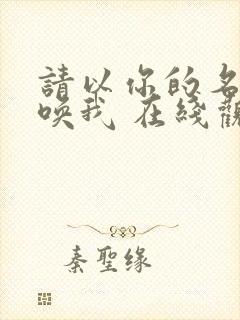 請以你的名
喚我 在綫觀
秦聖緣